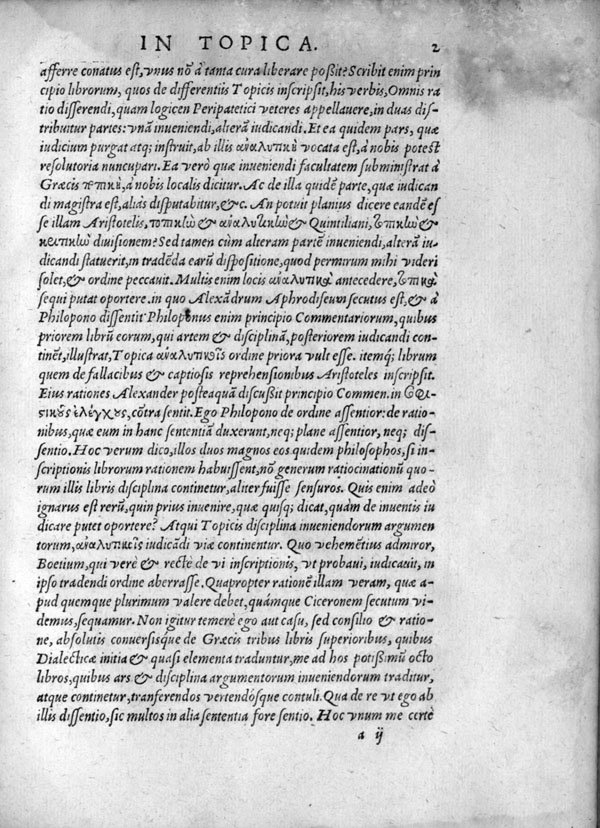 IN TOPICA. 2
afferre conatus est, vnus nõ à tanta cura liberare poßit? Scribit enim prin
cipio librorum, quos de differentiis Topicis inscripsit, his verbis, Omnis ra
tio disserendi, quam logicen Peripatetici veteres appellauere, in duas dis-
tribuitur partes: vnã inueniendi, alterã iudicandi. Et ea quidem pars, quæ
iudicium purgat atq; instruit, ab illis ἀναλυτικὴ vocata est, à nobis potest
resolutoria nuncupari. Ea verò quæ inueniendi facultatem subministrat à
Græcis τοπικὴ, à nobis localis dicitur. Ac de illa quidẽ parte, quæ iudican
di magistra est, aliàs disputabitur, &c. An potuit planius dicere eandẽ es
se illam Aristotelis, τοπικὼ & ἀναλυτικὼ & Quintiliani, τοπικὼ &
κριτικὼ diuisionem? Sed tamen cùm alteram partẽ inueniendi, alterã iu-
dicandi statuerit, in tradẽda earũ dispositione, quod permirum mihi videri
solet, & ordine peccauit. Multis enim locis ἀναλυτικὰ antecedere, τοπικὰ
sequi putat oportere. in quo Alexãdrum Aphrodiseum secutus est, & à
Philopono dissentit. Philoponus enim principio Commentariorum, quibus
priorem librũ eorum, qui artem & disciplinã, posteriorem iudicandi con-
tinẽt, illustrat, Topica ἀναλυτικοῖς ordine priora vult esse. itemq; librum
quem de fallacibus & captiosis reprehensionibus Aristoteles inscripsit.
Eius rationes Alexander posteaquã discußit principio Commen. in σοφι-
στικοὺς ἐλέγχους, cõtra sentit. Ego Philopono de ordine assentior: de ratio-
nibus, quæ eum in hanc sententiã duxerunt, neq; plane assentior, neq; dis-
sentio. Hoc verum dico, illos duos magnos eos quidem philosophos, si in-
scriptionis librorum rationem habuissent, nõ generum ratiocinationũ quo-
rum illis libris disciplina continetur, aliter fuisse sensuros. Quis enim adeò
ignarus est rerũ, quin prius inuenire, quæ quisq; dicat, quàm de inuentis iu
dicare putet oportere? Atqui Topicis disciplina inueniendorum argumen
torum, ἀναλυτικοῖς iudicãdi viæ continentur. Quo vehemẽtius admiror,
Boetium, qui verè & rectè de vi inscriptionis, vt probaui, iudicauit, in
ipso tradendi ordine aberrasse. Quapropter rationẽ illam veram, quæ a-
pud quemque plurimum valere debet, quámque Ciceronem secutum vi-
demus, sequamur. Non igitur temerè ego aut casu, sed consilio & ratio-
ne, absolutis conuersisque de Græcis tribus libris superioribus, quibus
Dialecticæ initia & quasi elementa traduntur, me ad hos potißimũ octo
libros, quibus ars & disciplina argumentorum inueniendorum traditur,
atque continetur, tranferendos vertendósque contuli. Qua de re vt ego ab
illis dissentio, sic multos in alia sententia fore sentio. Hoc vnum me certè
a ij